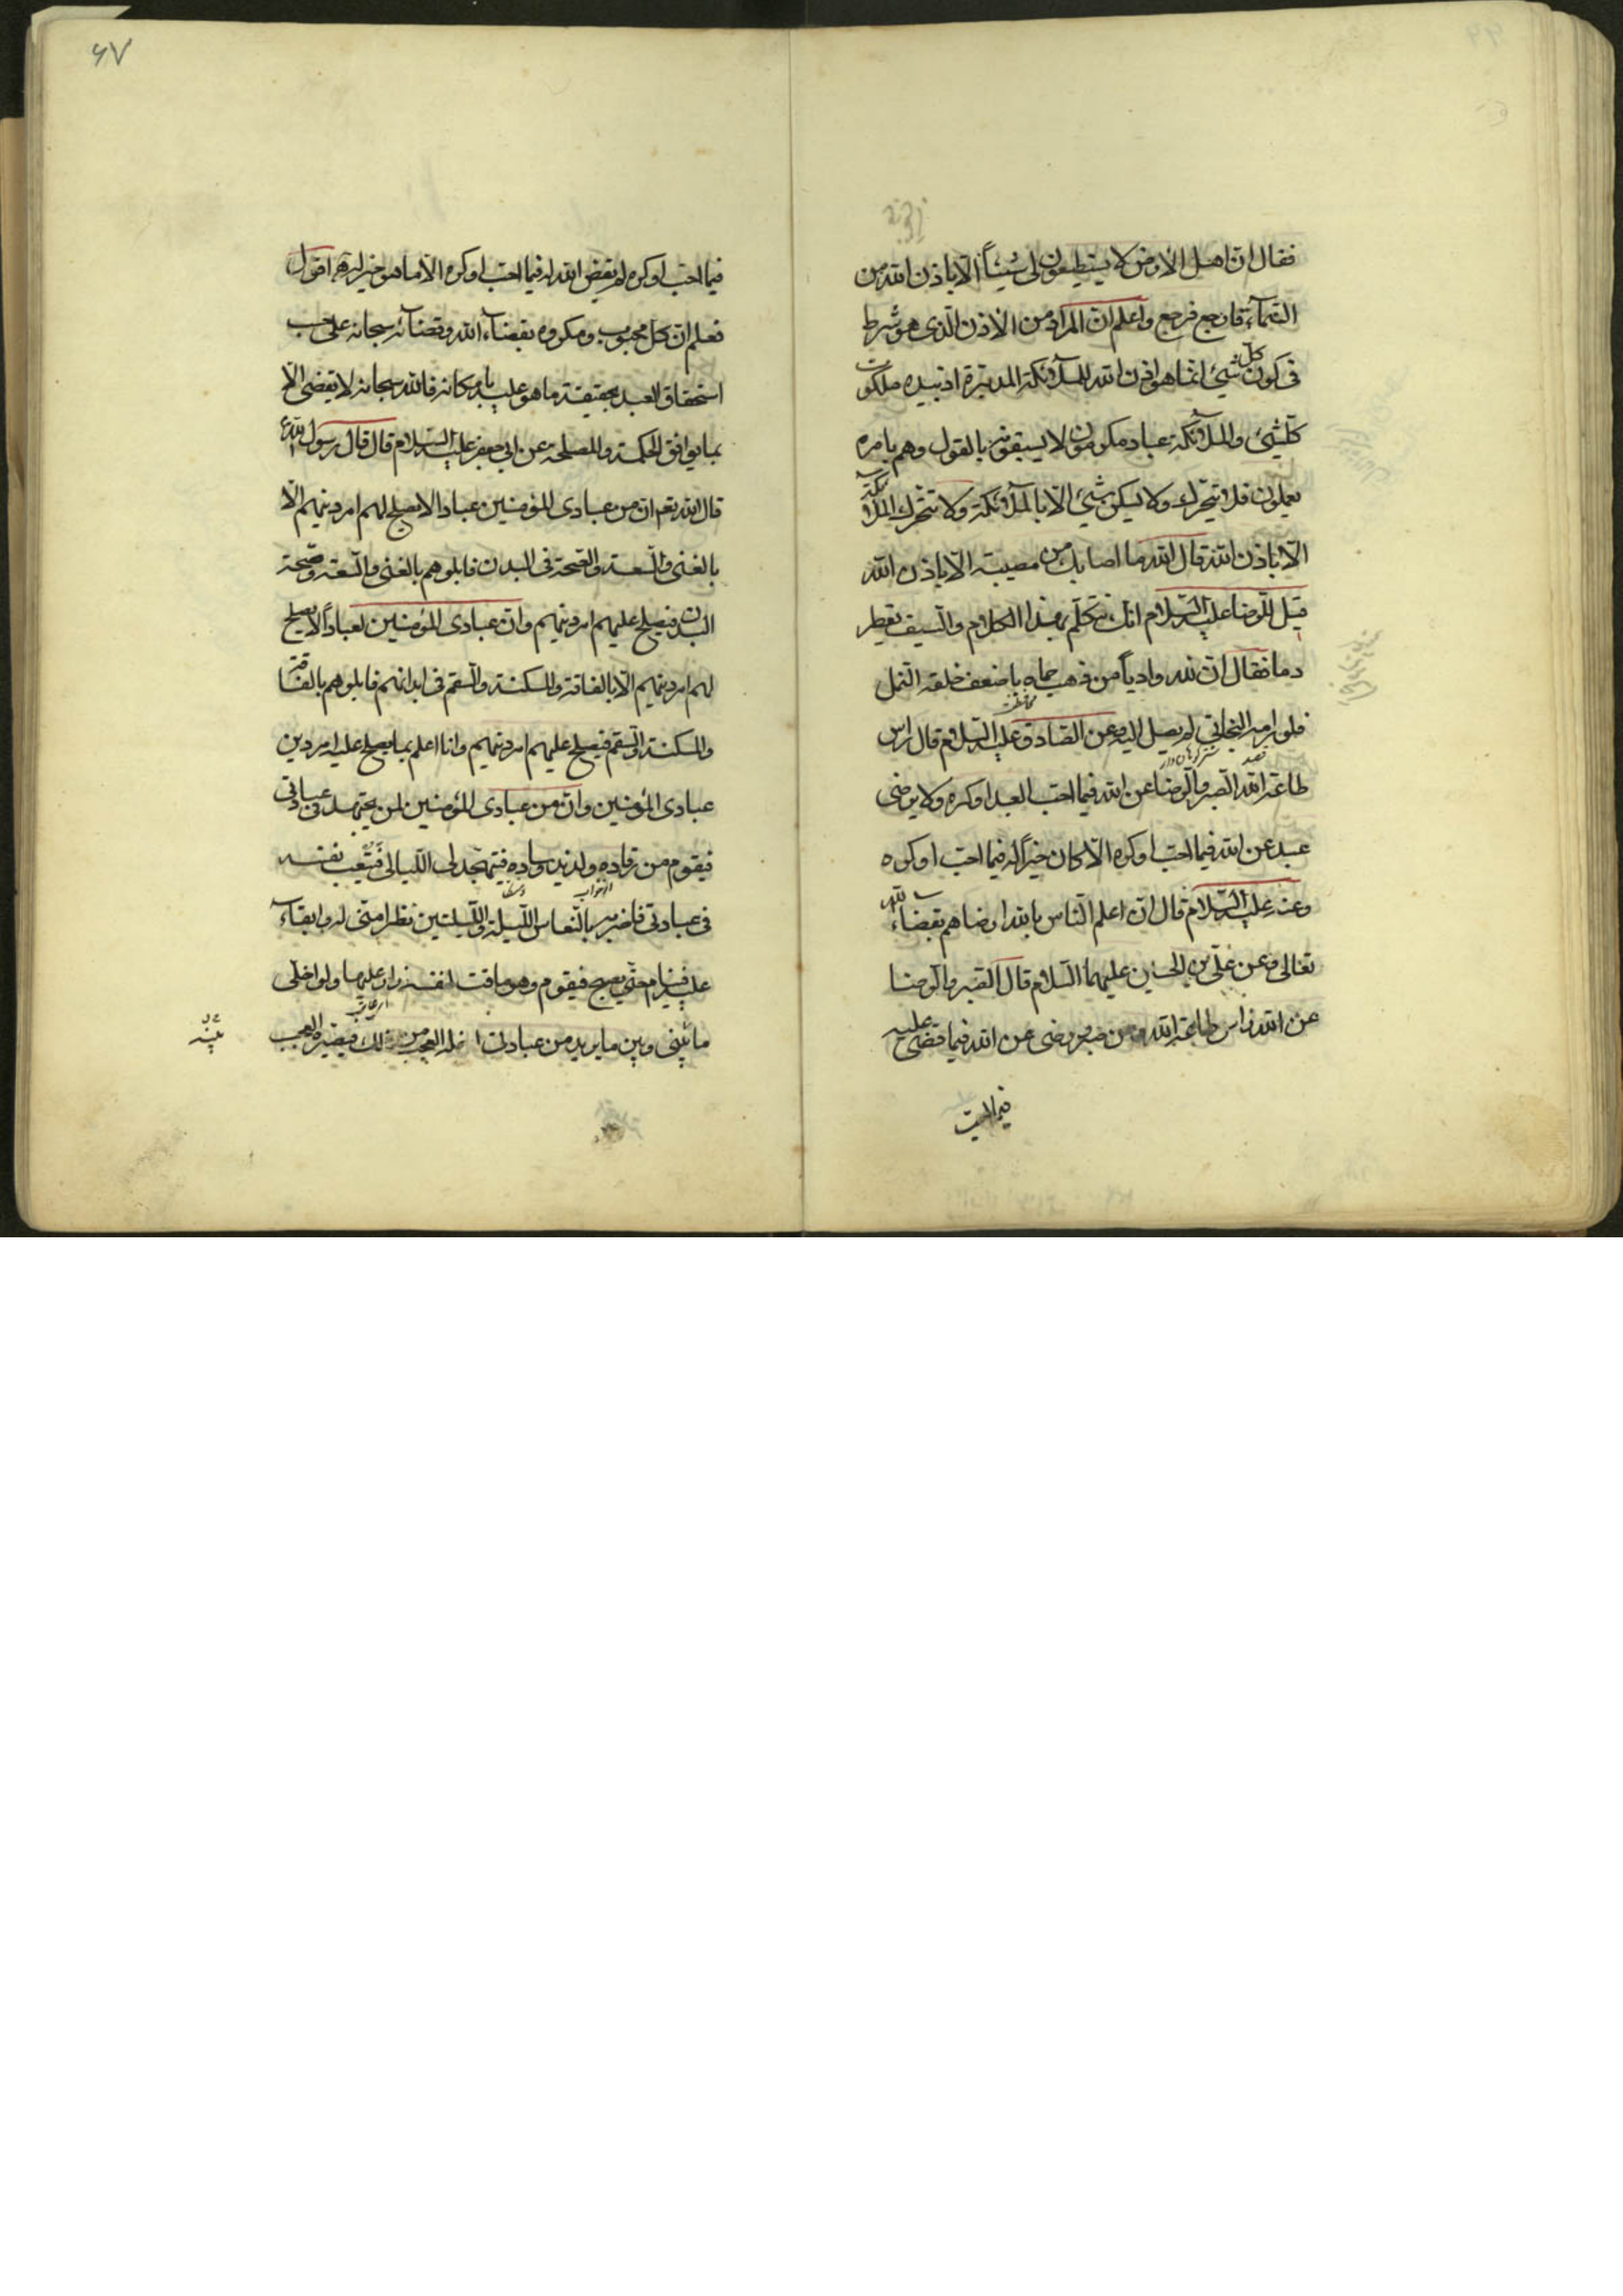 فقال ان اهل الارض لا يستطيعون لى شيئاً الّا باذن الله من
السّمآء فارجع فرجع واعلم انّ المراد من الاذن الّذى هو شرط
فى كون كلّ شيئ انّما هو اذن الله للملآئكة المدبّرة اذ بيده ملكوت
كلّشيئ والملآئكة عباد مكرمون لا يسبقونه بالقول وهم بامره
يعملون فلا يتحرّك ولا يسكن شيئ الّا بالملآئكة ولا تتحرّك الملآئكة
الّا باذن الله قال الله ما اصابك من مصيبة الّا باذن الله
قيل للرّضا عليه السّلام انّك تتكلّم بهذا الكلام والسّيف يقطر
دما فقال انّ لله وادياً من ذهب حماه باضعف خلقه النّمل
فلو رامه البخاتى لم يصل اليه وعن الصّادق عليه السّلام قال راس
طاعة الله الصّبر والرّضا عن الله فيما احبّ العبد او كره ولا يرضى
عبد عن الله فيما احبّ او كره الّا كان خيراً له فيما احبّ او كره
وعنه عليه السّلام قال انّ اعلم النّاس بالله ارضاهم بقضاء الله
تعالى وعن علىّ بن الحسين عليهما السّلام قال الصّبر والرّضا
عن الله راس طاعة الله ومن صبر ورضى عن الله فيما قضى عليه
۶۷
فيما احبّ او كره لم يقض الله له فيما احبّ او كره الّا ما هو خير له اقول
فعلم انّ كلّ محبوب ومكروه بقضآء الله وقضائه سبحانه على حسب
استحقاق العبد بحقيقة ما هو عليه بامكانه فالله سبحانه لا يقضى الّا
بما يوافق الحكمة والمصلحة عن ابى جعفر عليه السّلام قال قال رسول الله
قال الله تع ان من عبادى المؤمنين عبادا لا يصلح لهم امر دينهم الّا
بالغنى والسّعة والصّحّة فى البدن فابلوهم بالغنى والسّعة وصحّة
البدن فيصلح عليهم امر دينهم وانّ من عبادى المؤمنين لعباداً لا يصلح
لهم امر دينهم الّا بالفاقة والمسكنة والسّقم فى ابدانهم فابلوهم بالفاقة
والمسكنة والسّقم فيصلح عليهم امر دينهم وانا اعلم بما يصلح عليه امر دين
عبادى المؤمنين وانّ من عبادى المؤمنين لمن يجتهد فى عبادتى
فيقوم من رقاده ولذيذ وساده فيتهجّد لى اللّيالى فيتعب نفسه
فى عبادتى فاضربه بالنّعاس اللّيلة واللّيلتين نظرا منّى له وابقآء
عليه فينام حتّى يصبح فيقوم وهو ماقت لنفسه زار عليها ولو اخلّى
ما بينى وبين ما يريد من عبادتى لدخله العجب من ذلك فيصيّره العجب